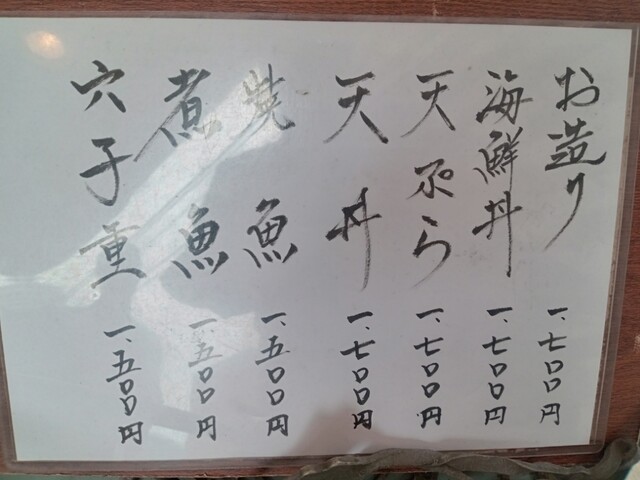 お造り 一、七〇〇円
海鮮丼 一、七〇〇円
天ぷら 一、七〇〇円
天丼 一、七〇〇円
焼魚 一、五〇〇円
煮魚 一、五〇〇円
穴子重 一、五〇〇円